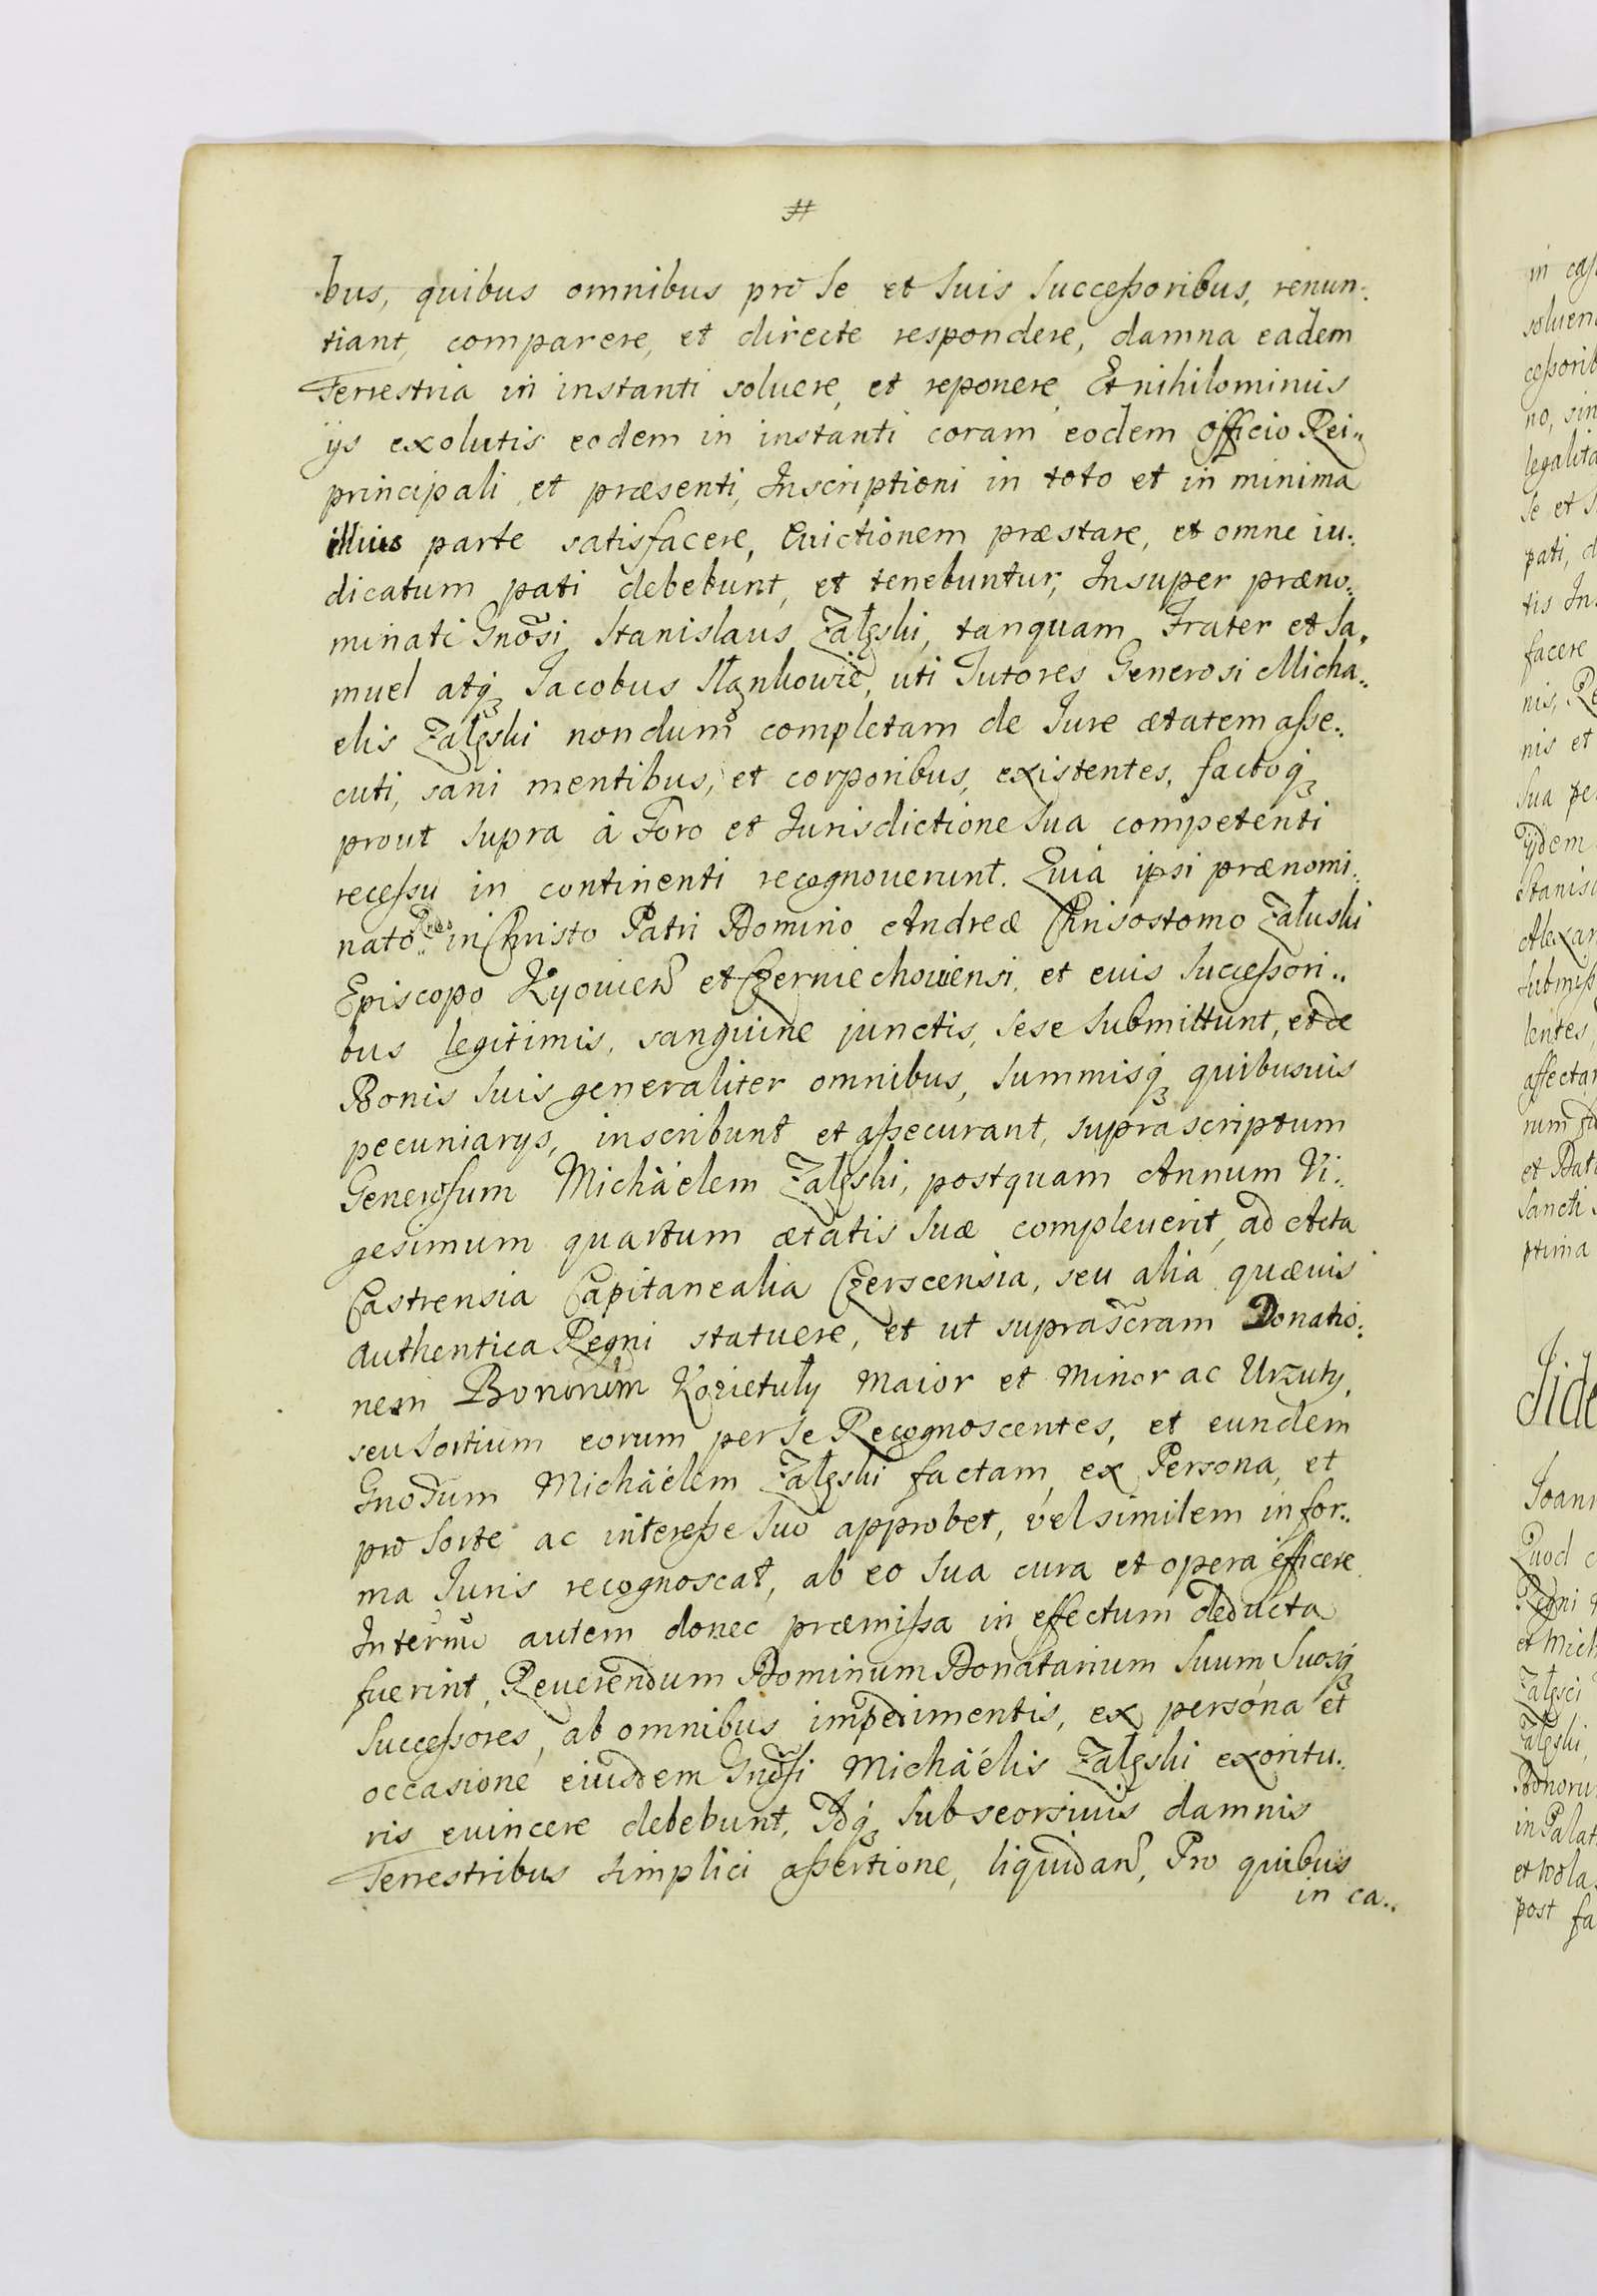 bus, quibus omnibus pro se et suis successoribus, renun:
tiant, comparere, et directe respondere, damna eadem
Terrestria in instanti soluere, et reponere, Et nihilominus
ijs exolutis eodem in instanti coram eodem officio Rei
principali, et præsenti, Inscriptioni in toto et in minima
illius parte satisfacere, Euictionem præstare, et omne iu:
dicatum pati debebunt, et tenebuntur, Insuper præno:
minati Gnõsi Stanislaus Zalęski, tanquam Frater et Sa,
muel atq́ꝫ Jacobus uti Tutores Generosi Micha..
elis Zalęski nondum completam de Jure ætatem asse..
cuti, sani mentibus, et corporibus, existentes, factoq́ꝫ
prout supra à Foro et Jurisdictione sua competenti
recessu in continenti recognouerunt. Quia ipsi prænomi..
nato Rndo in Christo Patri Domino Andreæ Chrisostomo Załuski
Episcopo Kyouien̄ et Czerniechouiensi, et euis successori..
bus legitimis, sanguine junctis, sese submittunt, et de
Bonis suis generaliter omnibus, summisq́ꝫ quibusuis
pecuniarys, inscribunt et assecurant, suprascriptum
Generosum Michàélem Zalęski, postquam Annum Vi..
gesimum quartum ætatis suæ compleuerit, ad Acta
Castrensia Capitanealia Czerscensia, seu alia quæuis
authentica Regni statuere, et ut suprasc̃ram Donatio:
nem Bonorum Kozietuły Maior et Minor ac Urzuty,
seu Sortium eorum per se Recognoscentes, et eundem
Gnosum Michàélem Zalęski factam, ex Persona, et
pro Sorte ac interesse suo approbet, vel similem in for..
ma Juris recognoscat, ab eo sua cura et opera efficere
Interim autem donec præmissa in effectum deducta
fuerint, Reuerendum Dominum Donatarium suum, Suosq́ꝫ
Successores, ab omnibus impedimentis, ex persona et
occasione eiusdem Gnõsi Michàélis Zalęski exoritu..
ris euincere debebunt, Idq́ꝫ sub seorsiuis damnis
Terrestribus simplici assertione, liquidan̄, Pro quibus
in ca..
in cas
soluen
cessorib
no, sin
legalita
se et s
pati, d
tis In
facere
nis, Re
nis et
sua pe
ijdem
Stanis
Alexan
submiss
lentes,
affecta
rum
et Dat
Sancti
ptima
Joan
Quod c
Regni
et Mich
Zalęsci
Zalęski,
Bonoru
in Palat
et Wola
post fa